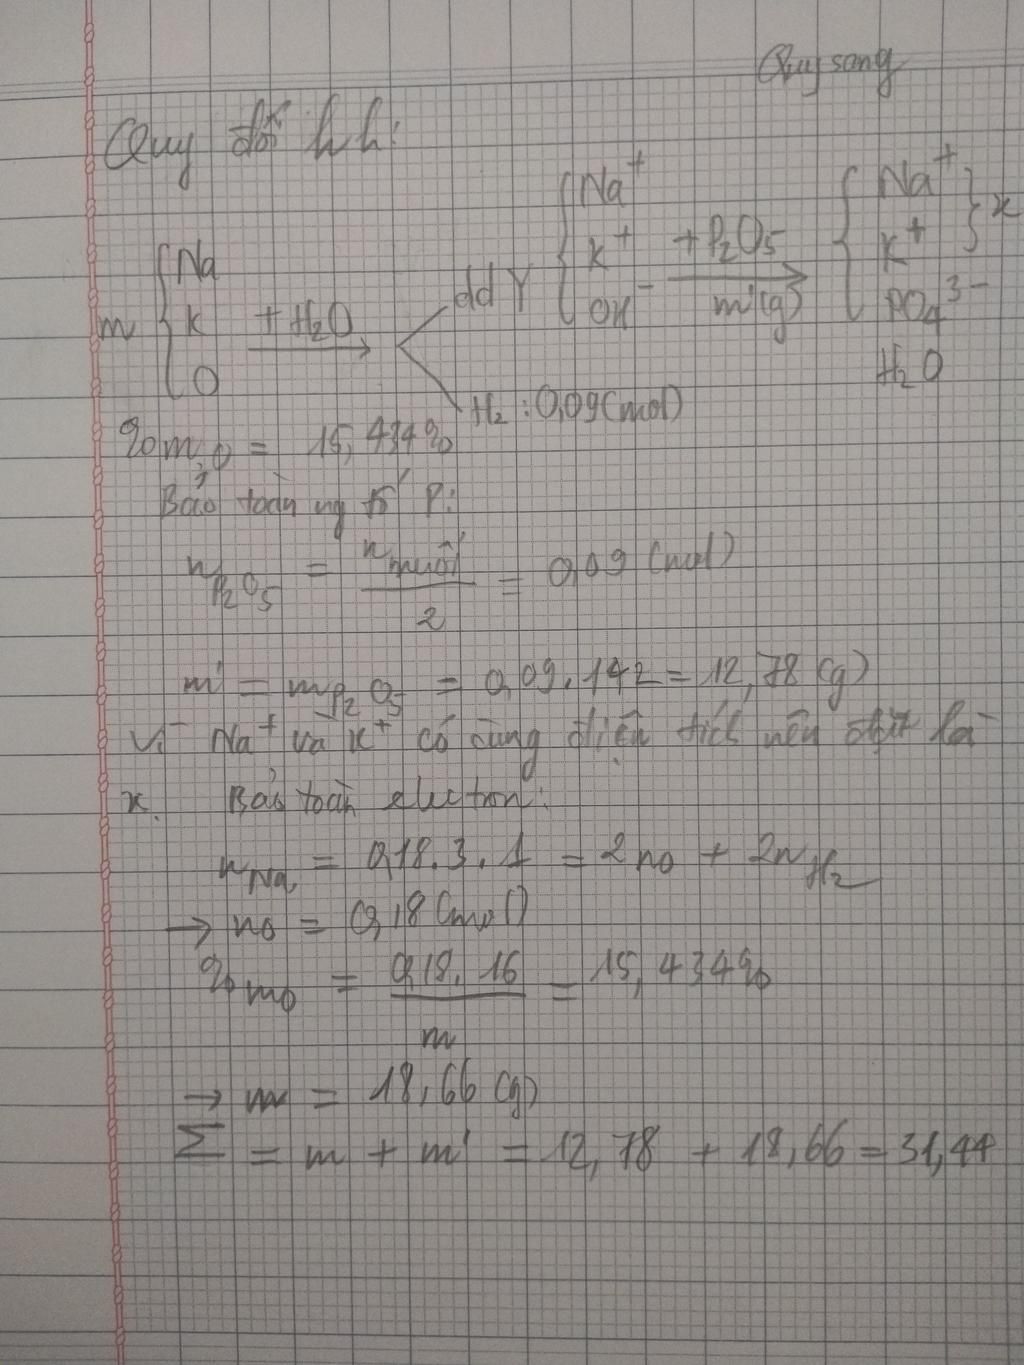 Quy song
Quy đổi hh:
m { Na K O + H₂O → ddY { Na⁺ K⁺ OH⁻ + P₂O₅ m'(g) → { Na⁺ K⁺ } x PO₄³⁻ H₂O
H₂ : 0,09(mol)
%mO = 15,434%
Bảo toàn ng tố P:
nP₂O₅ = nmuối / 2 = 0,09 (mol)
m' = mP₂O₅ = 0,09.142 = 12,78 (g)
Vì Na⁺ và K⁺ có cùng điện tích nên đặt là
x. Bảo toàn electron:
nNa = 0,18.3.1 = 2nO + 2nH₂
→ nO = 0,18 (mol)
%mO = 0,18.16 / m = 15,434%
→ m = 18,66 (g)
Σ = m + m' = 12,78 + 18,66 = 31,44